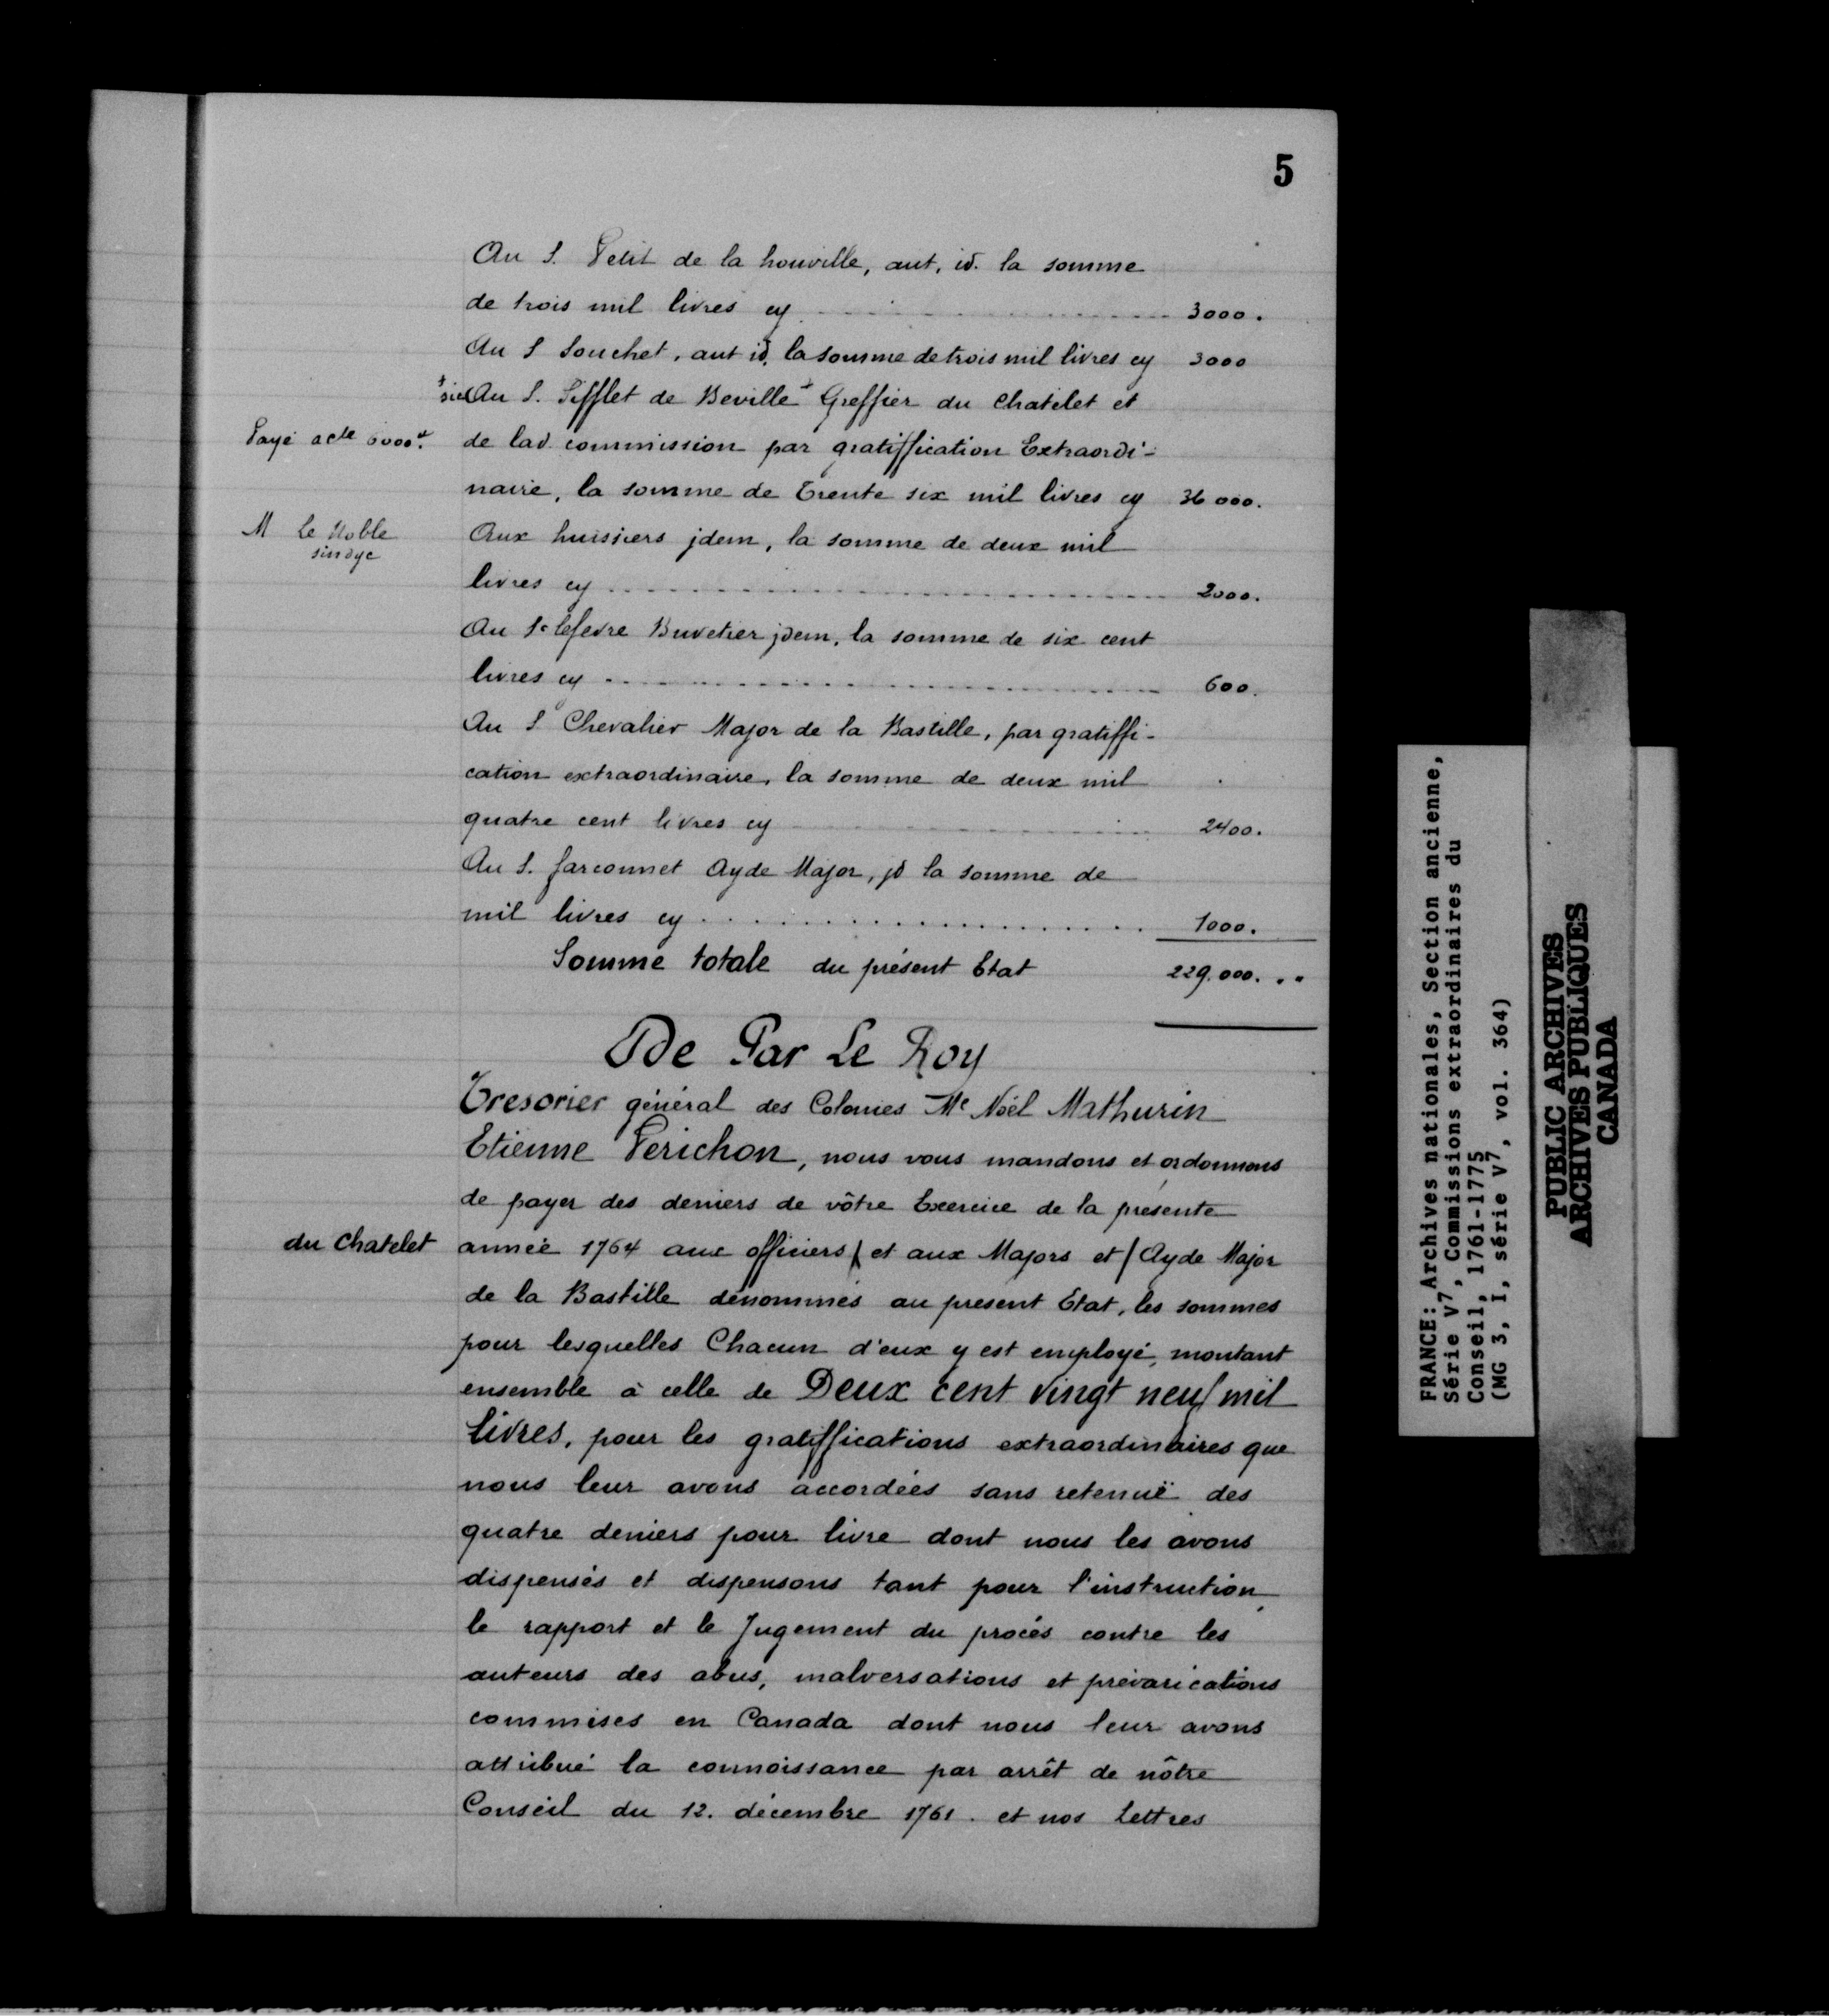 5
Au S. Petit de la houville, aut, id. la somme
de trois mil livres cy 3000.
Au S Souchet, aut id. la somme de trois mil livres cy 3000
+ sic Au S. Sifflet de Beville + Greffier du Chatelet et
Payé acte 6000# de lad. commission par gratiffication Extraordi-
naire, la somme de Trente six mil livres cy 36 000.
M Le Noble Aux huissiers jdem, la somme de deux mil
sindyc
livres cy 2000.
Au Sr lefevre Buvetier jdem, la somme de six cent
livres cy 600.
Au S Chevalier Major de la Bastille, par gratiffi-
cation extraordinaire, la somme de deux mil
quatre cent livres cy 2400.
Au S. farconnet Ayde Major, jd la somme de
mil livres cy 1000.
Somme totale du présent Etat 229.000. . .
De Par Le Roy
Tresorier général des Colonies Me Noël Mathurin
Etienne Perichon, nous vous mandons et ordonnons
de payer des deniers de vôtre Exercice de la présente
du Chatelet année 1764 aux officiers / et aux Majors et / Ayde Major
de la Bastille dénommés au present Etat, les sommes
pour lesquelles Chacun d'eux y est employé, montant
ensemble à celle de Deux cent vingt neuf mil
livres, pour les gratiffications extraordinaires que
nous leur avons accordées sans retenuë des
quatre deniers pour livre dont nous les avons
dispensés et dispensons tant pour l'instruction,
le rapport et le Jugement du procés contre les
auteurs des abus, malversations et prévarications
commises en Canada dont nous leur avons
attribué la connoissance par arrêt de nôtre
Conseil du 12. décembre 1761. et nos Lettres
FRANCE: Archives nationales, Section ancienne,
Série V7, Commissions extraordinaires du
Conseil, 1761-1775
(MG 3, I, série V7, vol. 364)
PUBLIC ARCHIVES
ARCHIVES PUBLIQUES
CANADA